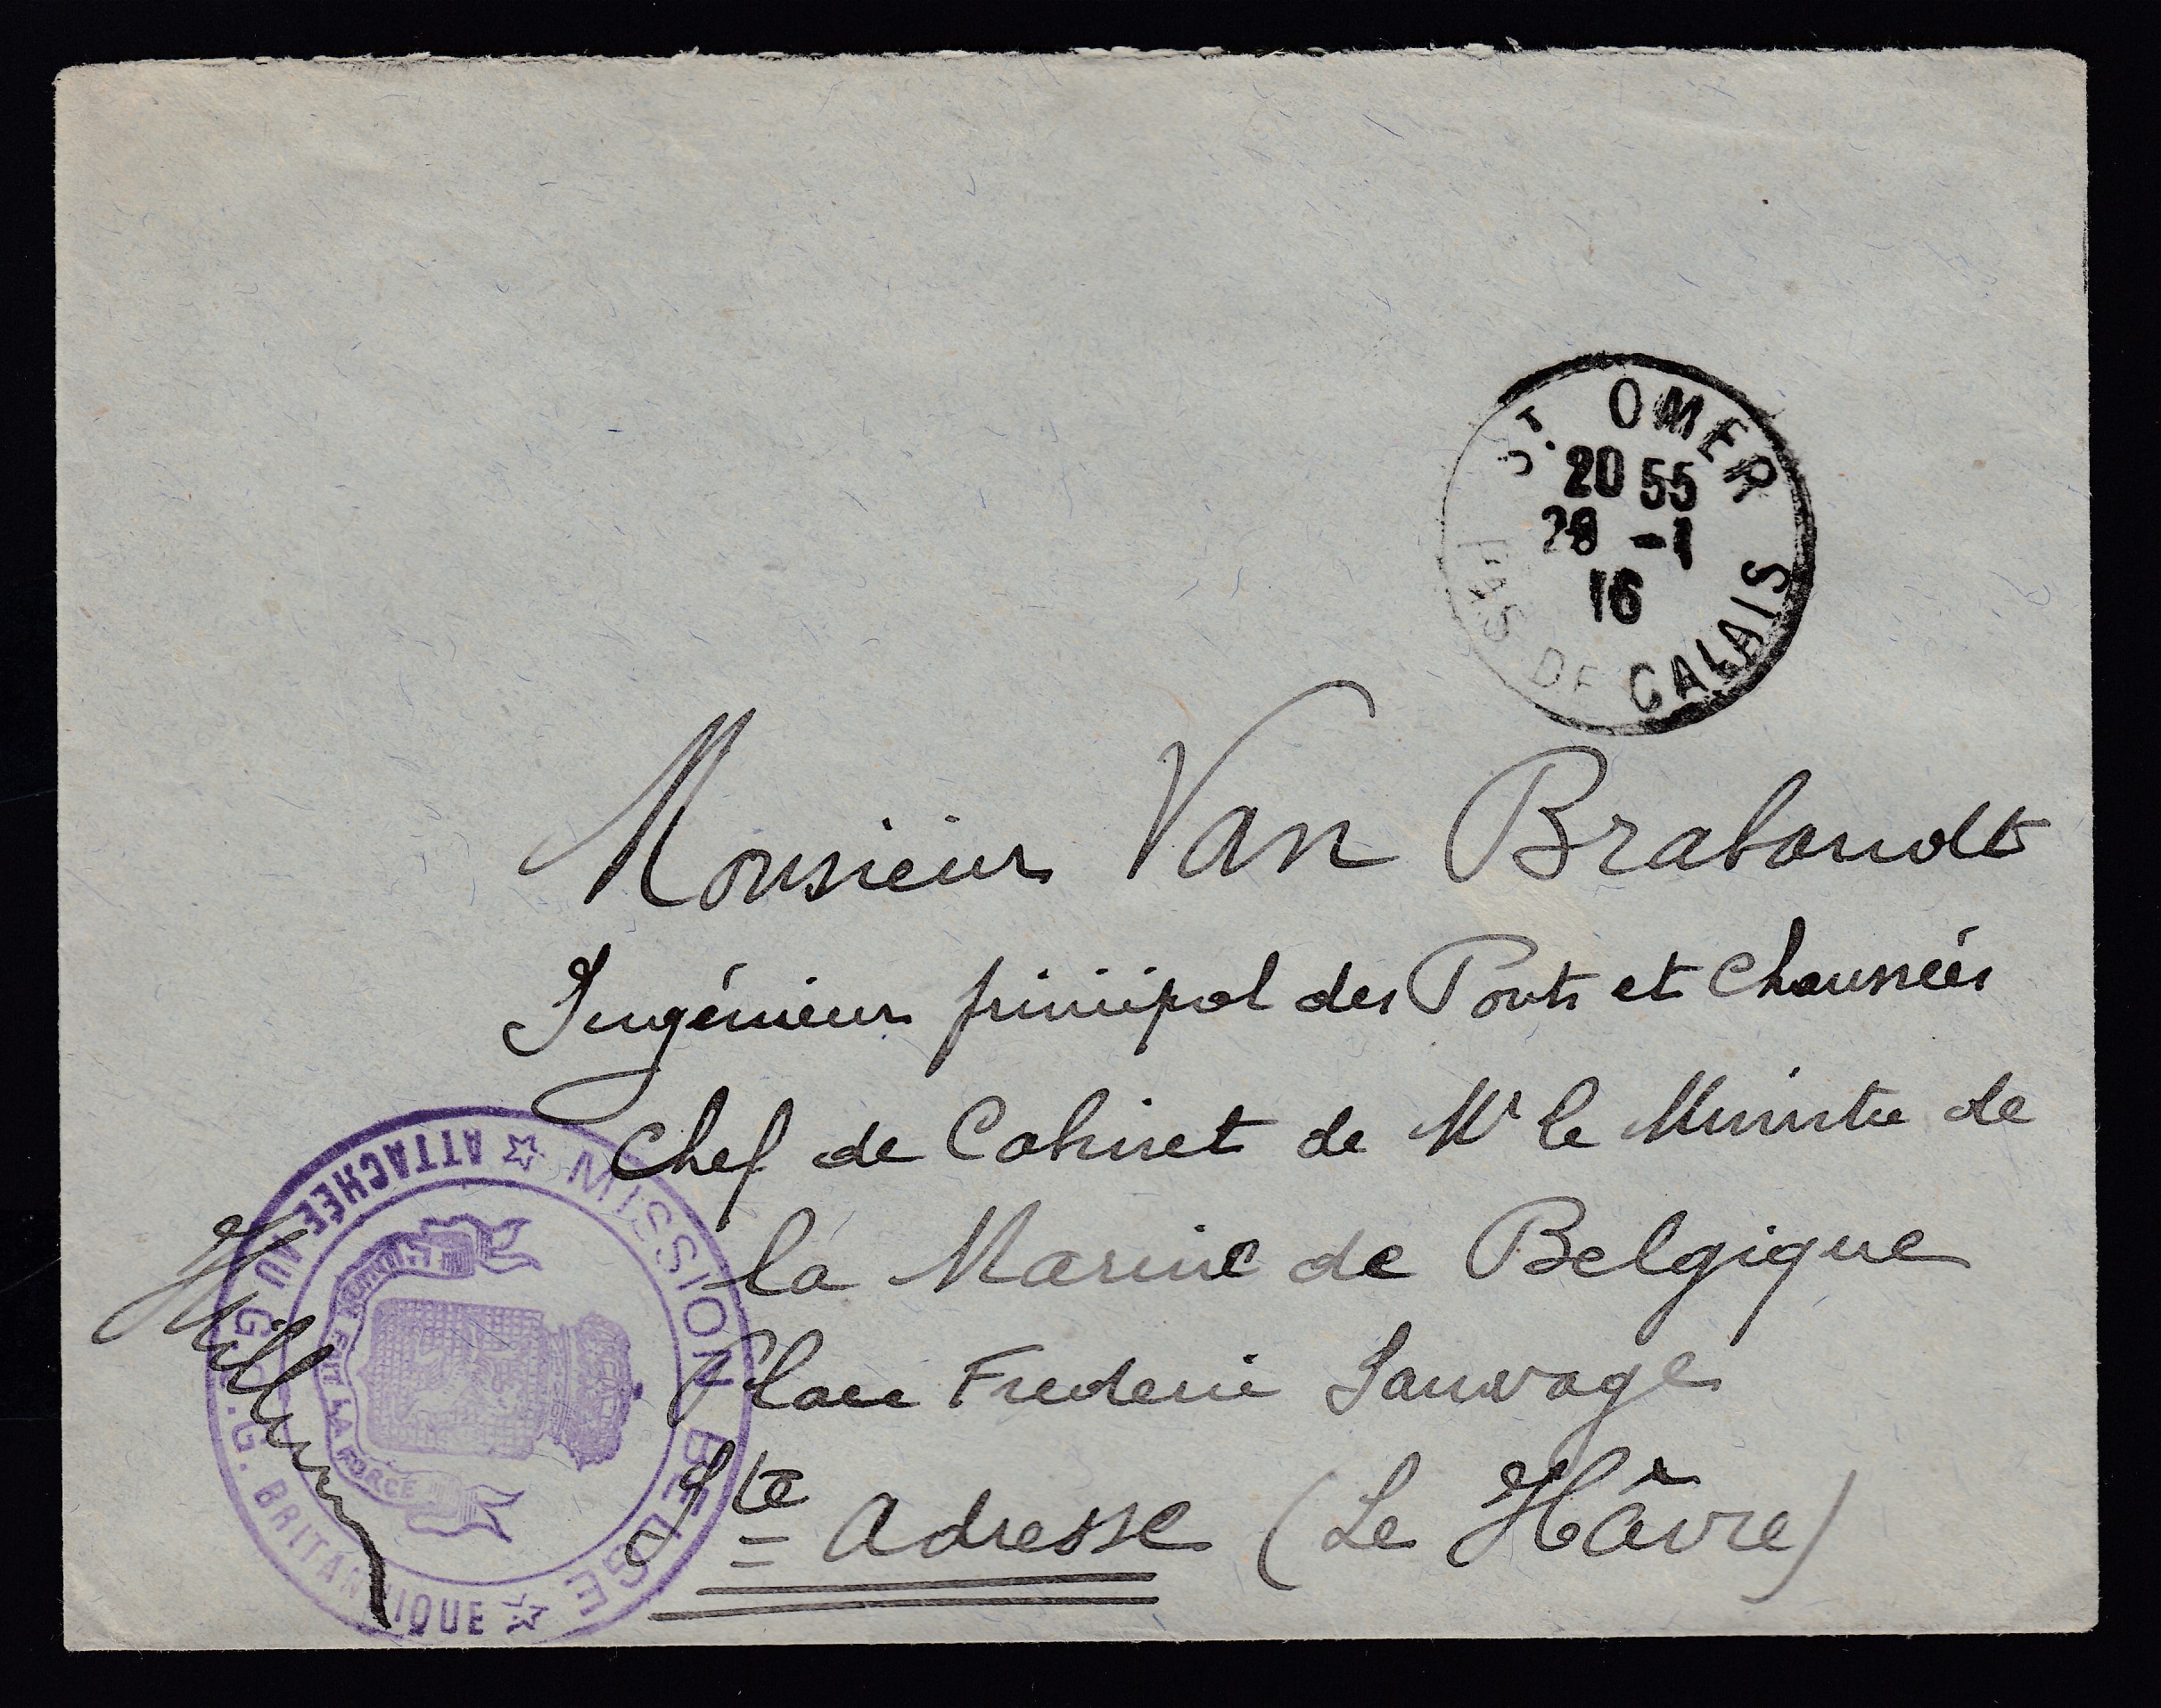 ST. OMER
20 55
28 -1
16
PAS DE CALAIS
Monsieur Van Brabandt
Ingénieur principal des Ponts et Chaussées
Chef de Cabinet de Mr le Ministre de
la Marine de Belgique
Place Frederic Sauvage
Ste Adresse (Le Hâvre)
MISSION BELGE
ATTACHÉE AU G.Q.G. BRITANNIQUE
L'UNION FAIT LA FORCE